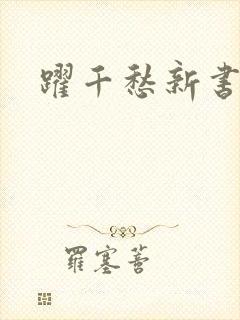 躍千愁新書
羅塞菩